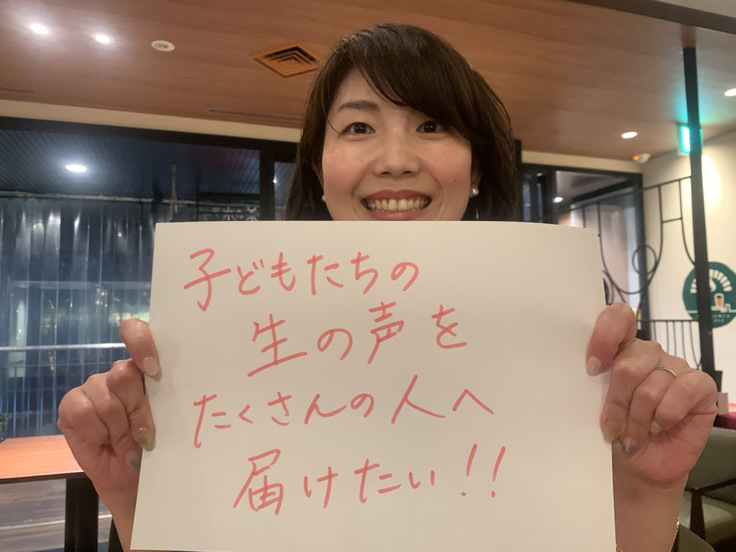 子どもたちの
生の声を
たくさんの人へ
届けたい!!